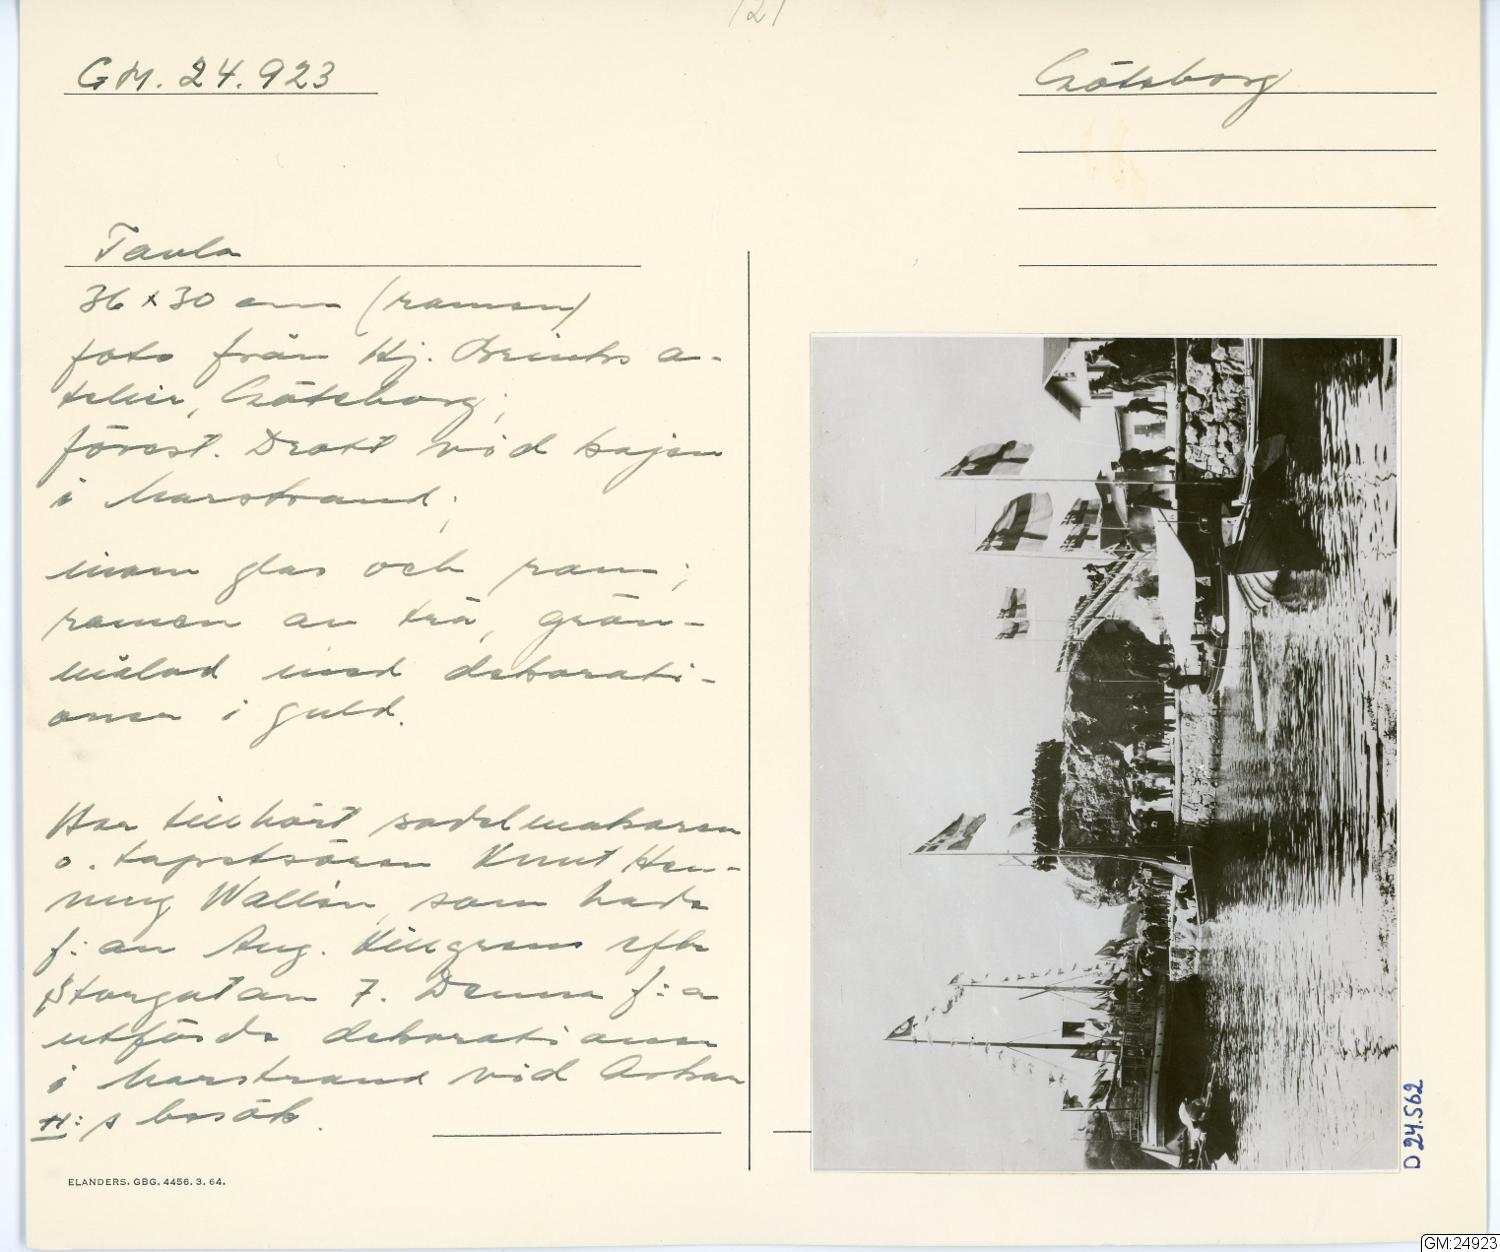 121
GM. 24.923
Göteborg
Tavla
36 x 30 cm (ramen)
foto från Hj. Brinks a-
teliér, Göteborg;
förest. Drott vid kajen
i Marstrand;
inom glas och ram;
ramen av trä, grön-
målad med dekorati-
oner i guld.
Har tillhört sadelmakaren
o. tapetsören Knut Hen-
ning Wallin, som hade
f:an Aug. Killgrens eftr
Storgatan 7. Denna f:a
utförde dekorationer
i Marstrand vid Oskar
II:s besök.
D 24.562
ELANDERS. GBG. 4456. 3. 64.
GM:24923